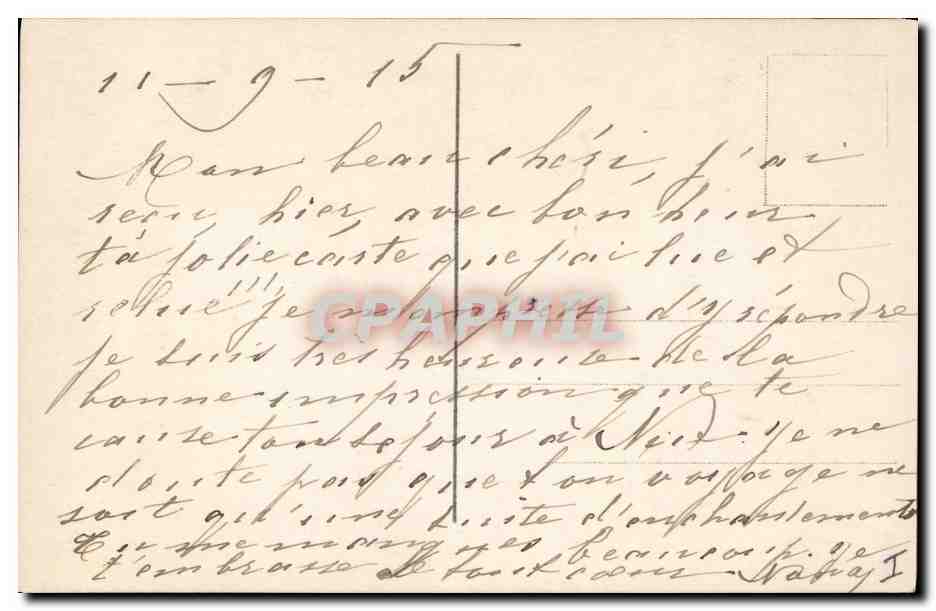 11 - 9 - 15
Mon beau chéri, j'ai
reçu, hier, avec bonheur
ta jolie carte que j'ai lue et
relue !!! je m'empresse d'y répondre
je suis très heureuse de la
bonne impression que te
cause ton séjour à Je ne
doute pas que ton voyage ne
soit qu'une suite d'enchantements
Tu me manques beaucoup. Je
t'embrasse de tout coeur
CPAPHIL